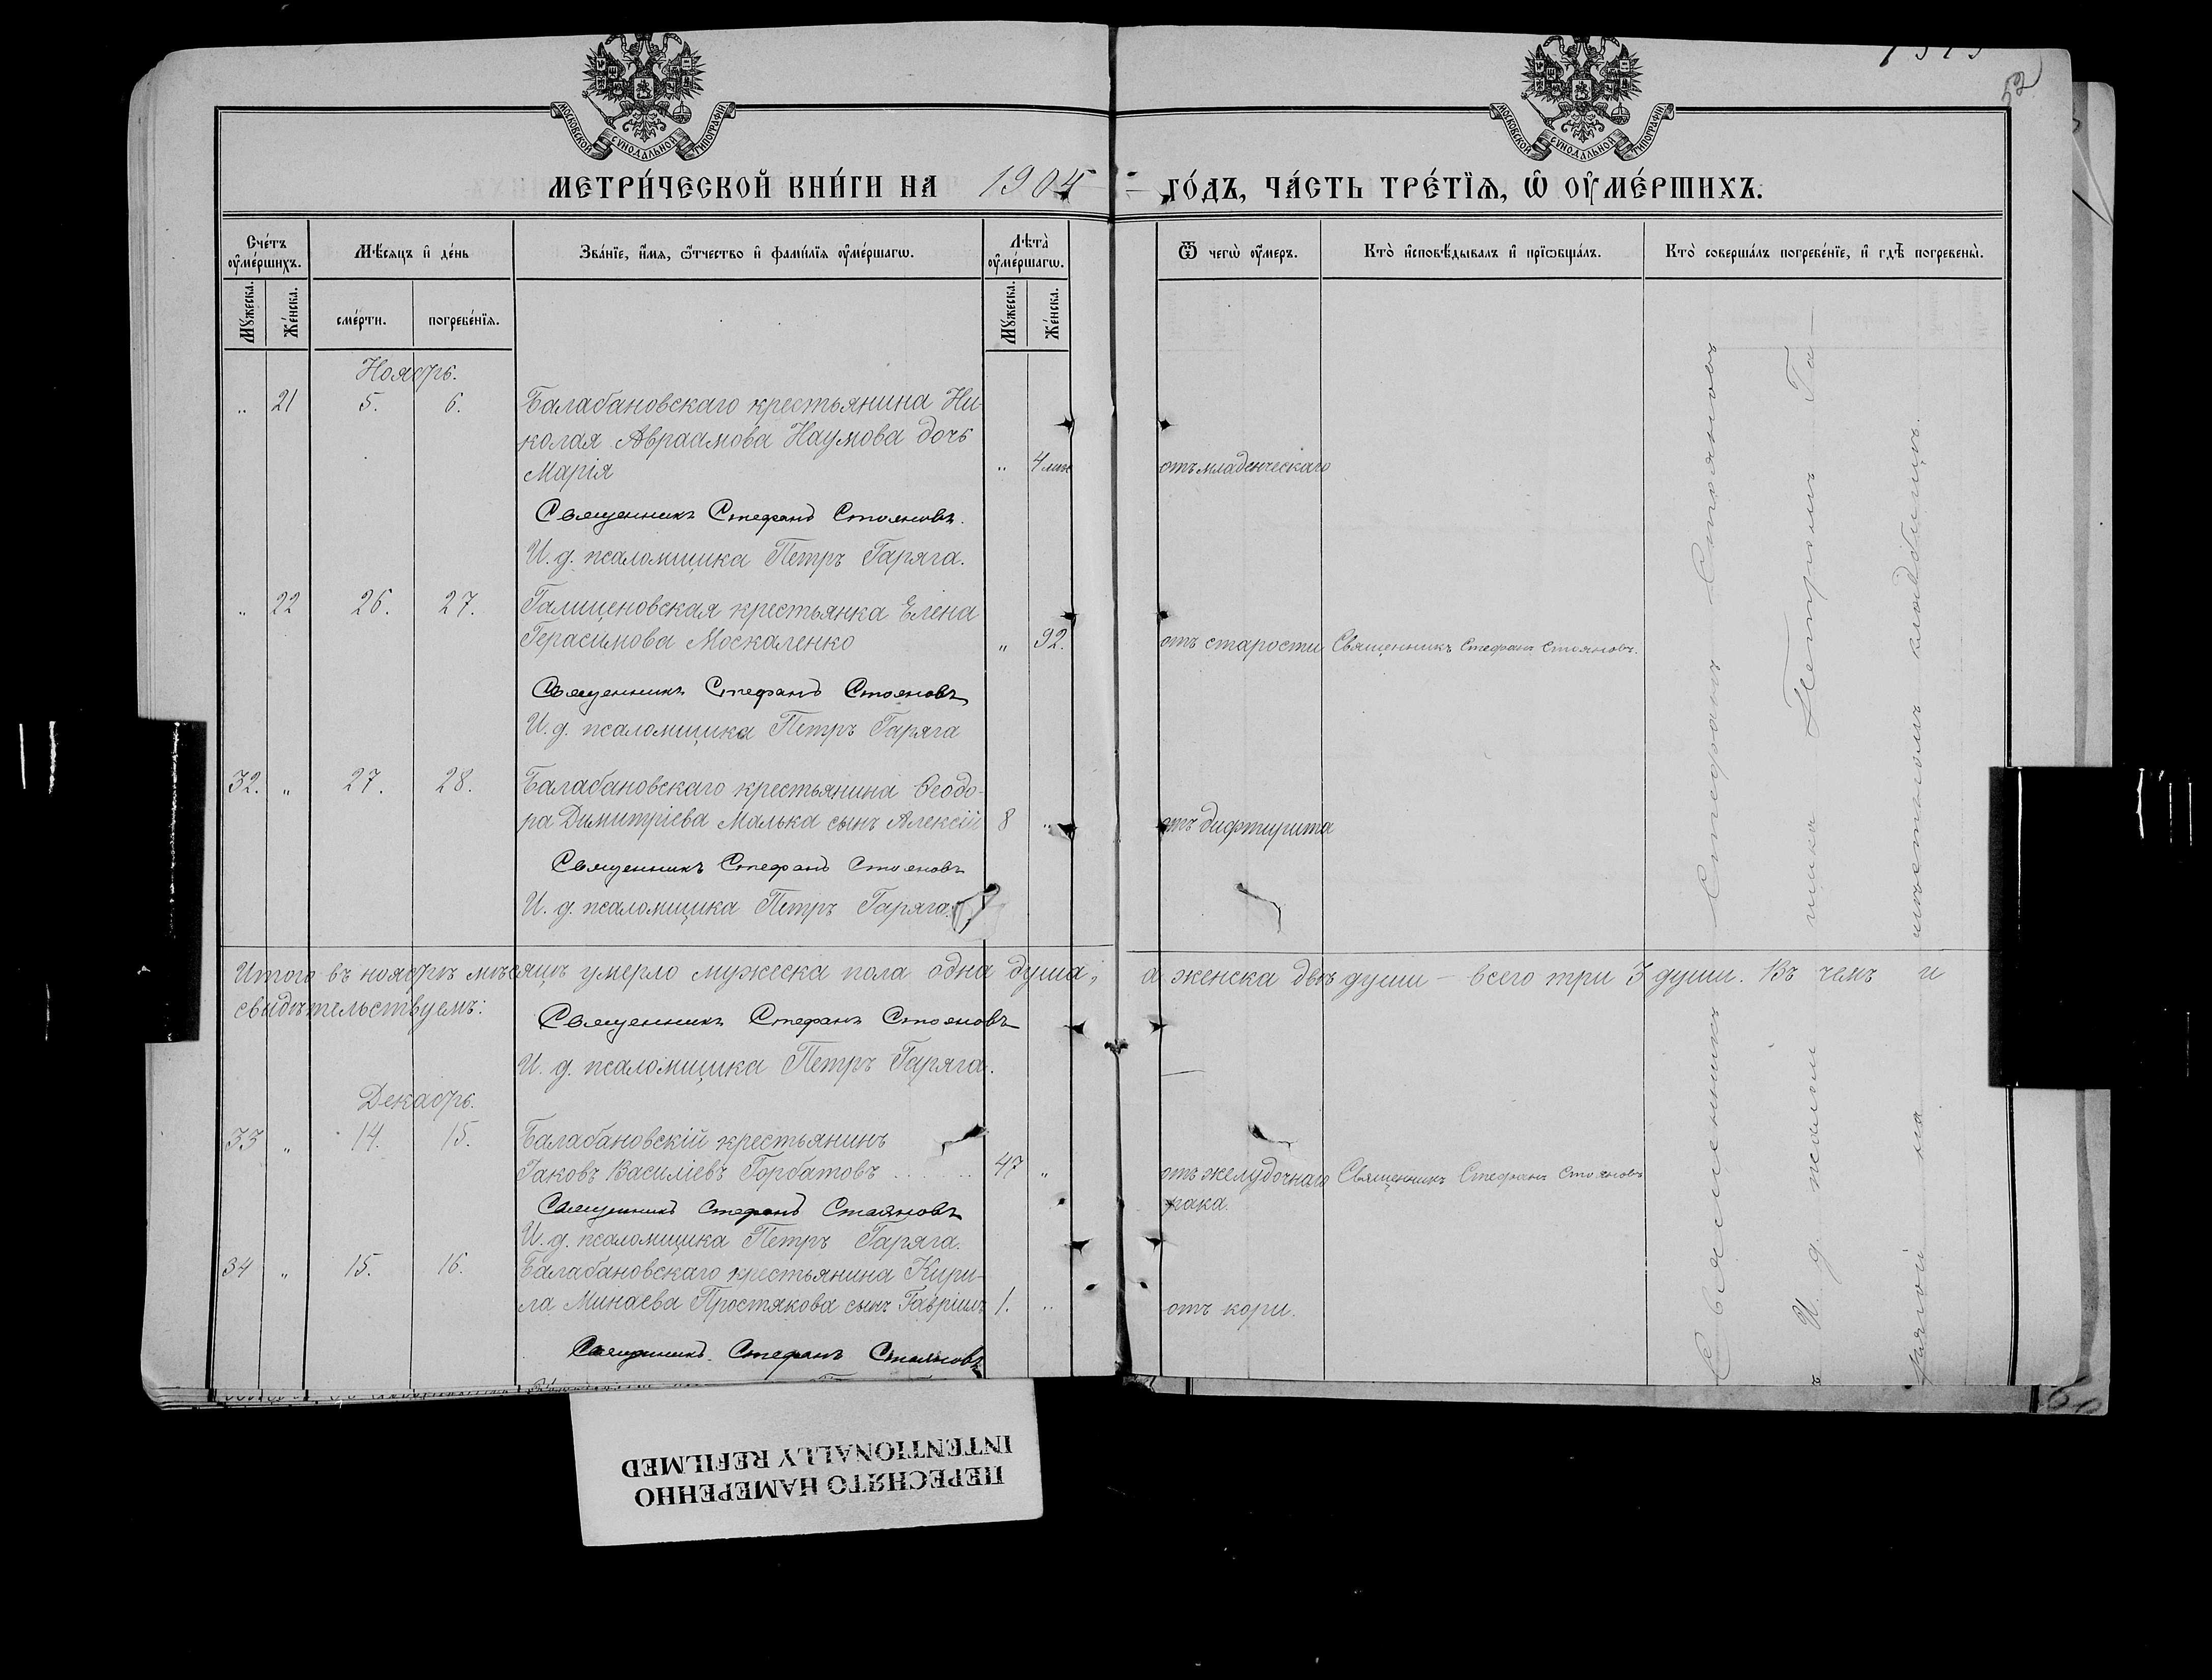 МОСКОВСКОЙ СУНОДАЛЬНОЙ ТИПОГРАФІИ
МОСКОВСКОЙ СУНОДАЛЬНОЙ ТИПОГРАФІИ
52
МЕТРИ́ЧЕСКОЙ КНИ́ГИ НА 1904 ГО́ДЪ, ЧА́СТЬ ТРЕ́ТЇѦ, Ѡ ОУМЕ́РШИХЪ.
Сче́тъ оуме́ршихъ.
Мѣ́сяцъ и де́нь
Зва́нїе, и́мѧ, ѻ́тчество и фами́лїѧ оуме́ршагѡ.
Лѣта̀ оуме́ршагѡ.
Ѿ чегѡ̀ оу́меръ.
Кто̀ исповѣ́дывалъ и прїѡбща́лъ.
Кто̀ соверша́лъ погребе́нїе, и гдѣ̀ погребены̀.
Му́жеска.
Же́нска.
сме́рти.
погребе́нїѧ.
Му́жеска.
Же́нска.
Ноябрь.
" 21 5. 6. Балабановскаго крестьянина Ни-
колая Авраамова Наумова дочь
Марія " 4 отъ младенческаго
Священникъ Стефанъ Стояновъ.
И. д. псаломщика Петръ Гаряга.
" 22 26. 27. Галищеновская крестьянка Елена
Герасимова Москаленко " 92. отъ старости Священникъ Стефанъ Стояновъ.
Священникъ Стефанъ Стояновъ
И. д. псаломщика Петръ Гаряга
32. " 27. 28. Балабановскаго крестьянина Ѳеодо-
ра Димитріева Малька сынъ Алексій 8 " отъ дифтирита
Священникъ Стефанъ Стояновъ
И. д. псаломщика Петръ Гаряга.
Итого въ ноябрѣ мѣсяцѣ умерло мужеска пола одна душа, а женска двѣ души – всего три 3 души. Въ чемъ и
свидѣтельствуемъ:
Священникъ Стефанъ Стояновъ
И. д. псаломщика Петръ Гаряга.
Декабрь.
33 " 14. 15. Балабановскій крестьянинъ
Іаковъ Василіевъ Горбатовъ 47 " отъ желудочнаго Священникъ Стефанъ Стояновъ
рака.
Священникъ Стефанъ Стояновъ
И. д. псаломщика Петръ Гаряга.
34 " 15. 16. Балабановскаго крестьянина Кири-
ла Минаева Простякова сынъ Гавріилъ 1. " отъ кори.
Священникъ Стефанъ Стояновъ
Священникъ Стефанъ Стояновъ
И. д. псаломщика Петромъ Га-
на мѣстномъ кладбищѣ.
ПЕРЕСНЯТО НАМЕРЕННО
INTENTIONALLY REFILMED